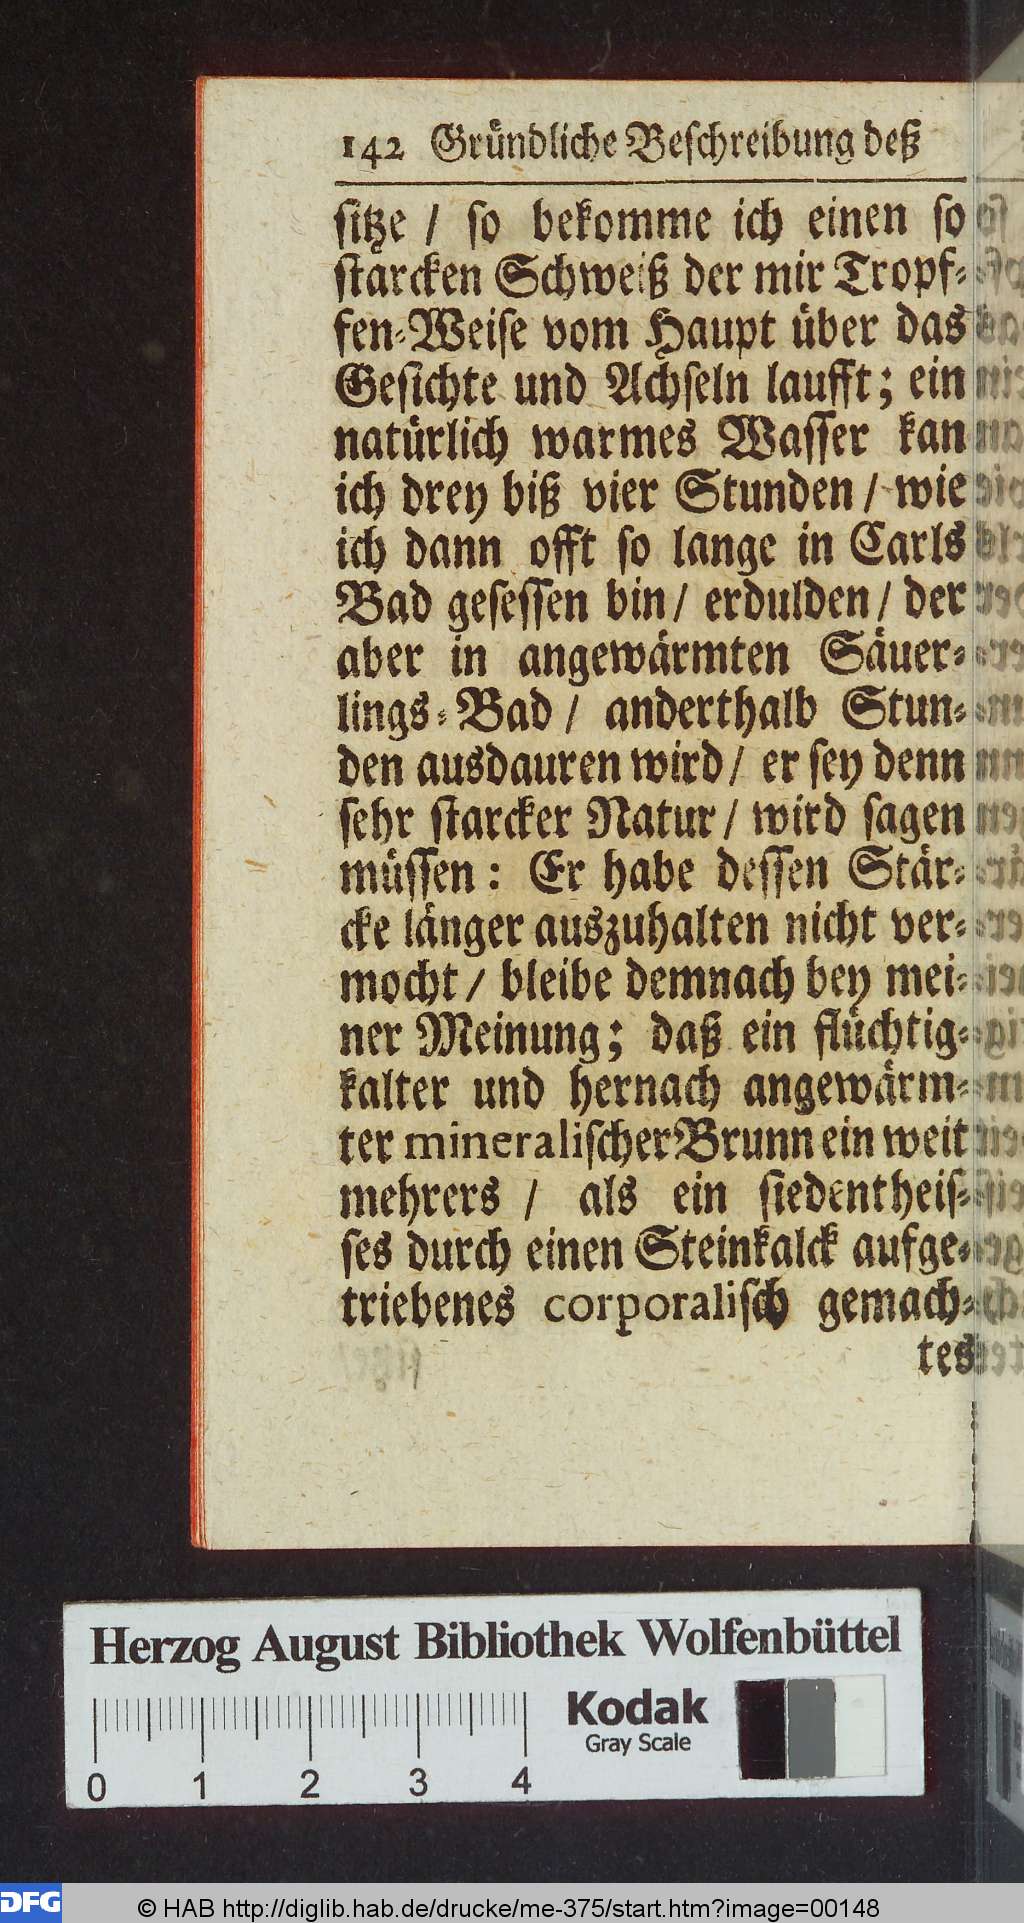 142 Gründliche Beschreibung deß
sitze / so bekomme ich einen so
starcken Schweiß der mir Tropf-
fen-Weise vom Haupt über das
Gesichte und Achseln laufft; ein
natürlich warmes Wasser kan
ich drey biß vier Stunden / wie
ich dann offt so lange in Carls
Bad gesessen bin / erdulden / der
aber in angewärmten Säuer-
lings-Bad / anderthalb Stun-
den ausdauren wird / er sey denn
sehr starcker Natur / wird sagen
müssen: Er habe dessen Stär-
cke länger auszuhalten nicht ver-
mocht / bleibe demnach bey mei-
ner Meinung; daß ein flüchtig-
kalter und hernach angewärm-
ter mineralischer Brunn ein weit
mehrers / als ein siedentheis-
ses durch einen Steinkalck aufge-
triebenes corporalisch gemach-
tes
Herzog August Bibliothek Wolfenbüttel
Kodak
Gray Scale
0 1 2 3 4
DFG © HAB http://diglib.hab.de/drucke/me-375/start.htm?image=00148